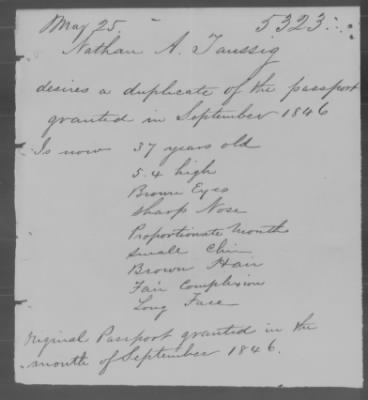 May 25. 5323.
Nathan A. Taussig
desires a duplicate of the passport
granted in September 1846
Is now 37 years old
5.4 high
Brown Eyes
Sharp Nose
Proportionate Mouth
Small Chin
Brown Hair
Fair Complexion
Long Face
Original Passport granted in the
month of September 1846.